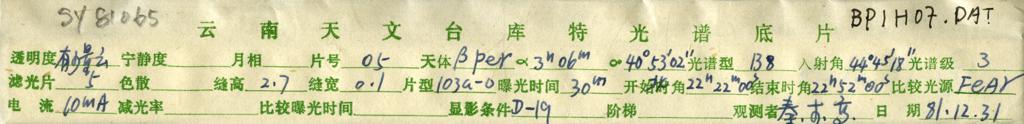 SY81065
BP1H07.DAT
云南天文台库特光谱底片
透明度 有薄云 宁静度 月相 片号 05 天体 β per α 3h06m α 40°53′02″ 光谱型 B8 入射角 44°45′18″ 光谱级 3
滤光片 5 色散 缝高 2.7 缝宽 0.1 片型 103a-O 曝光时间 30m 开始时角 22h22m00s 结束时角 22h52m00s 比较光源 FeAr
电流 10mA 减光率 比较曝光时间 显影条件 D-19 阶梯 观测者 秦. 日期 81.12.31